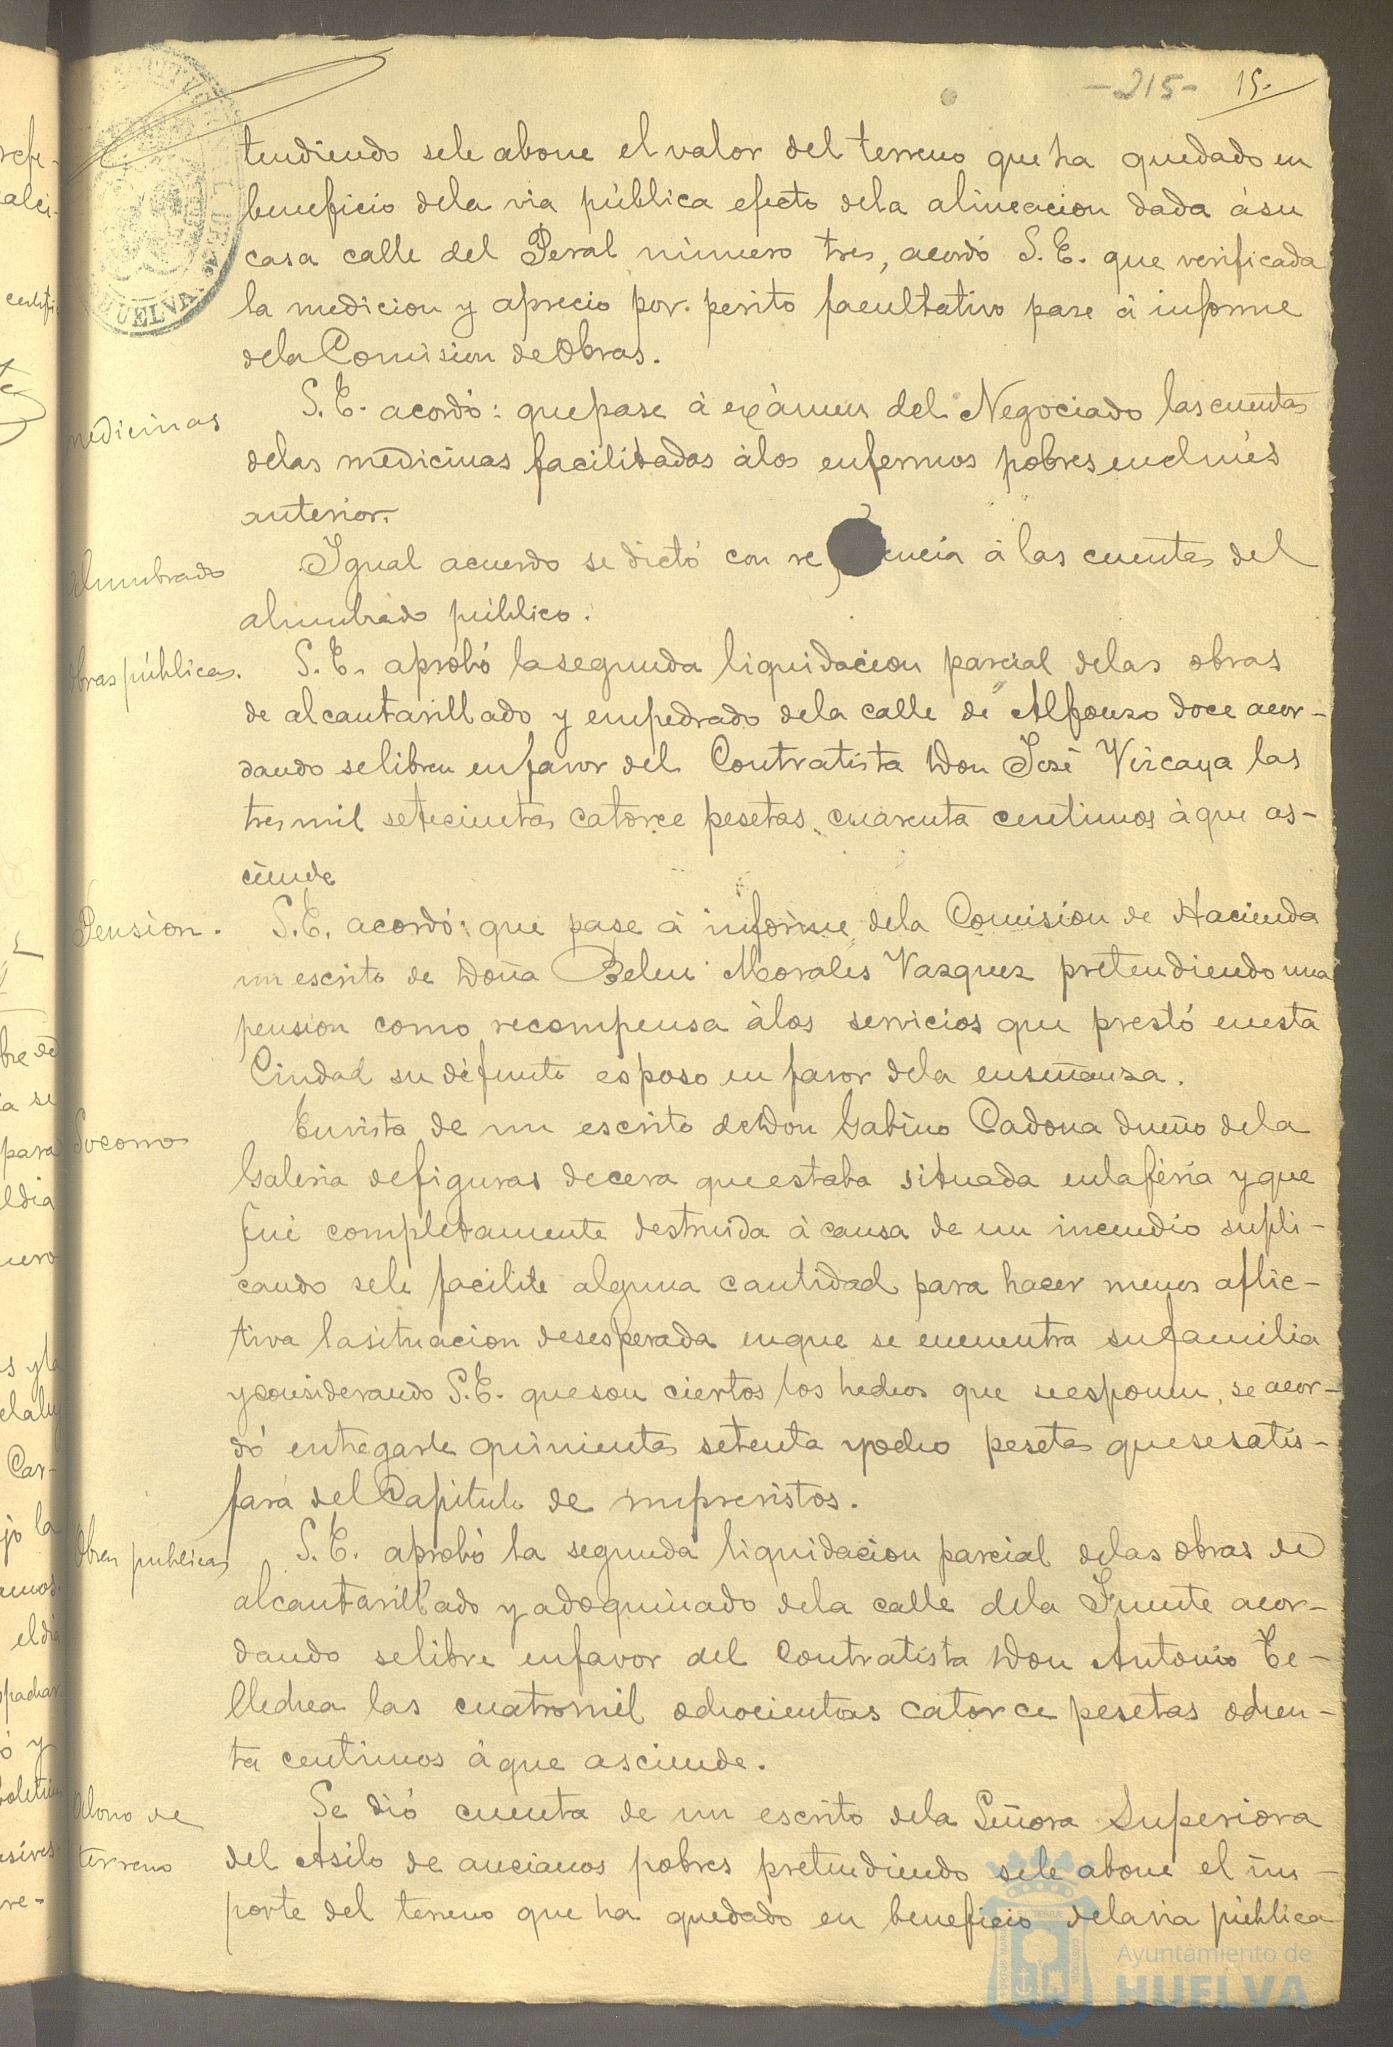 -215- 15.
tendiendo sele abone el valor del terreno que ha quedado en
beneficio dela via pública efecto dela alineacion dada ásu
casa calle del Peral número tres, acordó S.E. que verificada
la medicion y aprecio por perito facultativo pase á informe
dela Comision de Obras.
medicinas
S.E. acordó: que pase á exámen del Negociado las cuentas
delas medicinas facilitadas álos enfermos pobres enel més
anterior.
alumbrado
Igual acuerdo se dictó con re encia á las cuentas del
alumbrado público.
Obras públicas.
S.E. aprobó la segunda liquidacion parcial delas obras
de alcantarillado y empedrado dela calle de Alfonso doce acor-
dando se libren en favor del Contratista Don José Vizcaya las
tres mil setecientas catorce pesetas cuarenta centimos á que as-
ciende
Pension.
S.E. acordó: que pase á informe dela Comision de Hacienda
un escrito de Doña Belen Morales Vazquez pretendiendo una
pension como recompensa álos servicios que prestó enesta
Ciudad su difunto esposo en favor dela enseñanza.
Socorro
En vista de un escrito de Don Gabino Cadona dueño dela
Galeria de figuras de cera que estaba situada en la féria y que
fué completamente destruida á causa de un incendio supli-
cando sele facilite alguna cantidad para hacer menos aflic-
tiva la situacion desesperada enque se encuentra su familia
y considerando S.E. que son ciertos los hechos que se esponen, se acor-
dó entregarle quinientas setenta y ocho pesetas que se satis-
fará del Capitulo de imprevistos.
Obras publicas
S.E. aprobó la segunda liquidacion parcial delas obras de
alcantarillado y adoquinado dela calle dela Fuente acor-
dando se libre en favor del Contratista Don Antonio Te-
llechea las cuatro mil ochocientas catorce pesetas ochen-
ta centimos á que asciende.
Abono de
terreno
Se dió cuenta de un escrito dela Señora Superiora
del Asilo de ancianos pobres pretendiendo sele abone el im-
porte del terreno que ha quedado en beneficio dela via pública
HUELVA
Ayuntamiento de
HUELVA